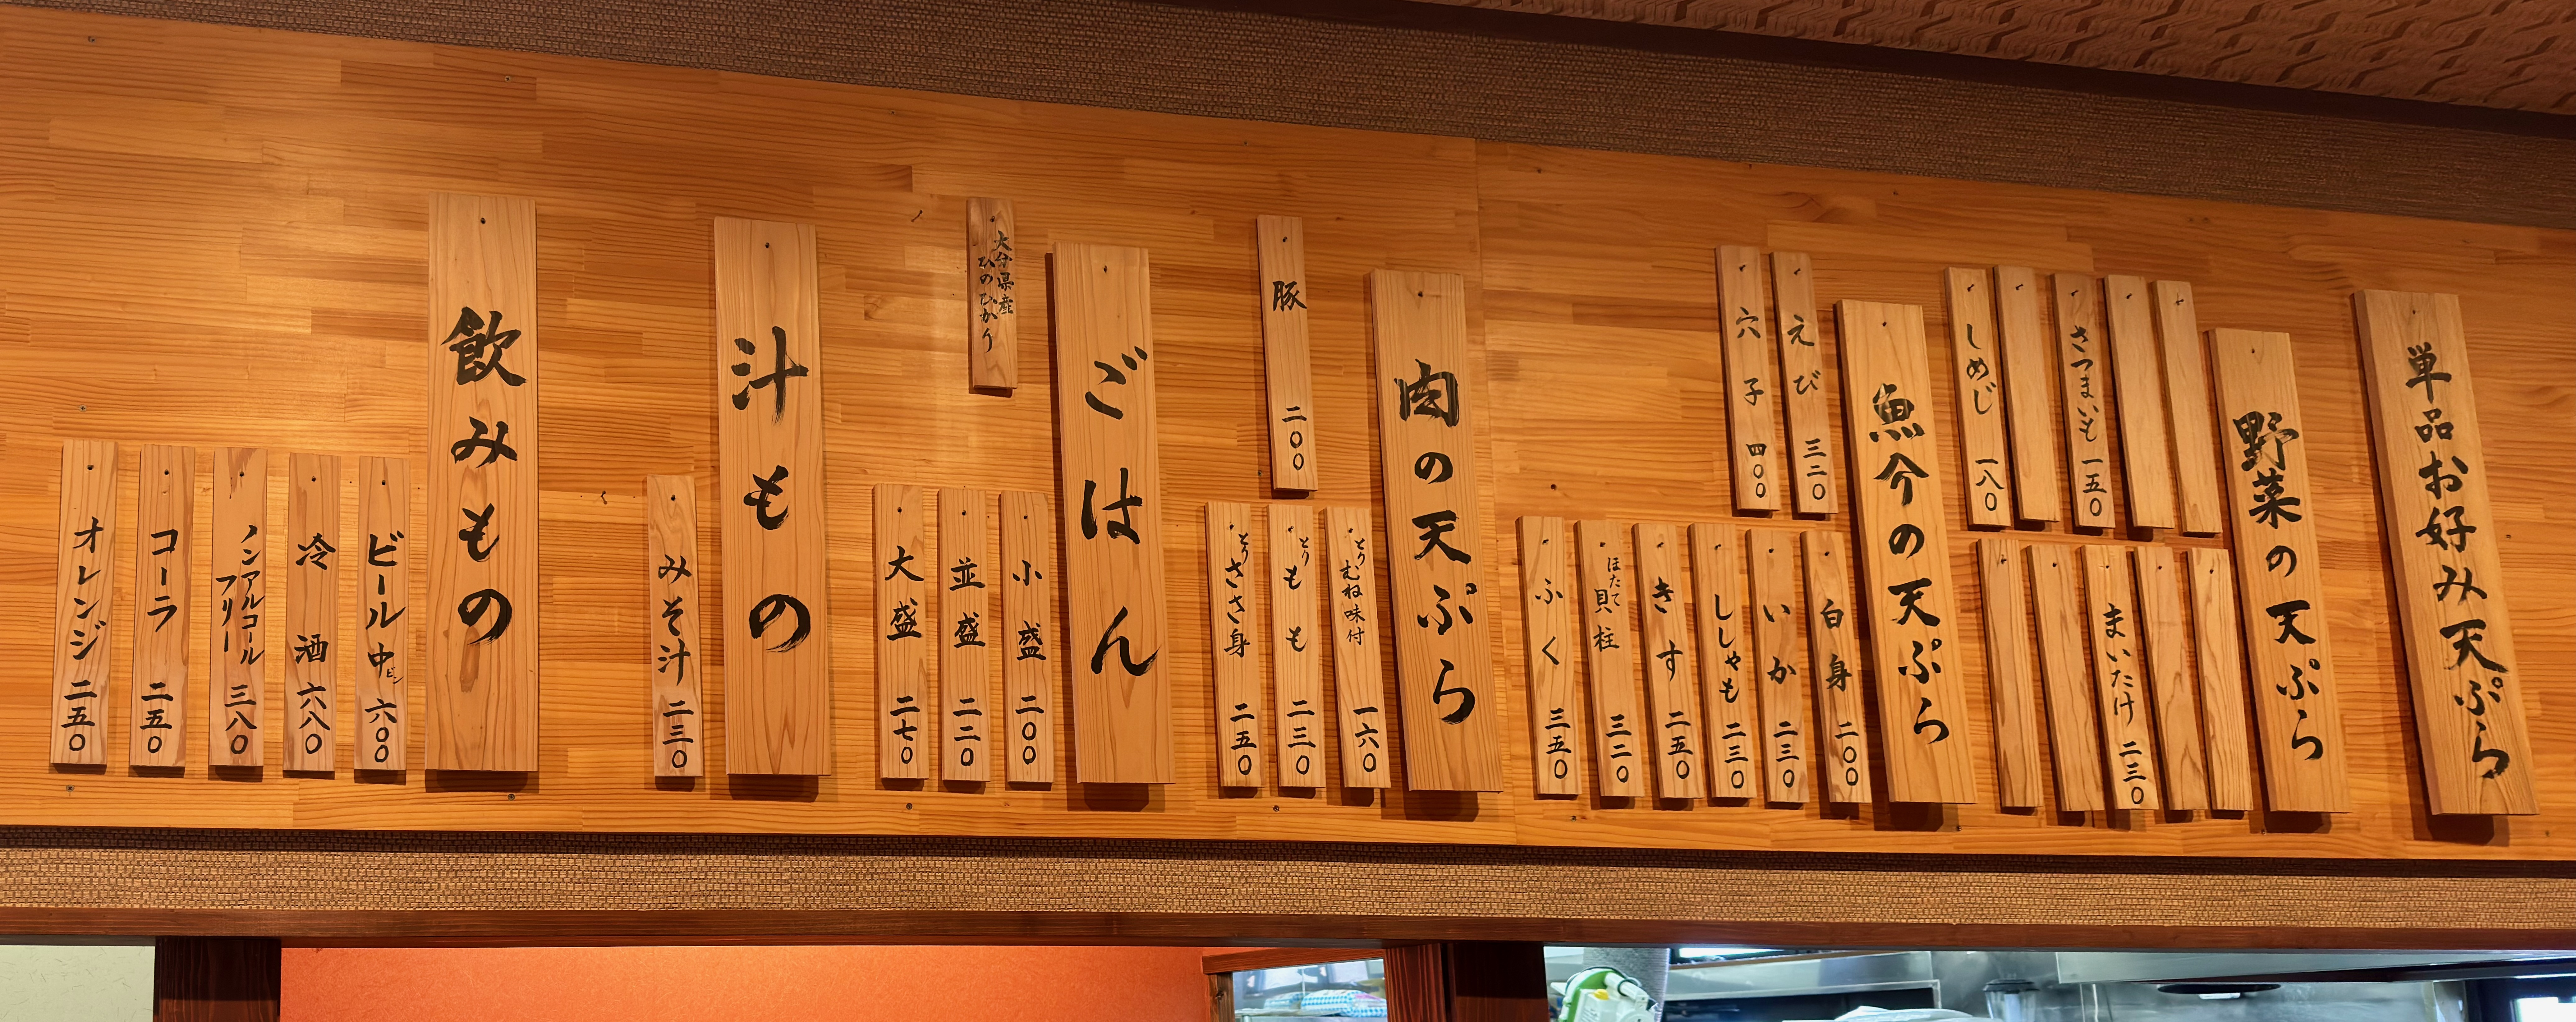 単品お好み天ぷら
野菜の天ぷら
さつまいも 一五〇
しめじ 一八〇
まいたけ 二三〇
魚介の天ぷら
えび 三二〇
穴子 四〇〇
白身 二〇〇
いか 二三〇
ししゃも 二三〇
きす 二五〇
ほたて貝柱 三二〇
ふく 三五〇
肉の天ぷら
豚 二〇〇
とりむね味付 一六〇
とりもも 二三〇
とりささ身 二五〇
ごはん
大分県産
ひのひかり
小盛 二〇〇
並盛 二二〇
大盛 二七〇
汁もの
みそ汁 二三〇
飲みもの
ビール中ビン 六〇〇
冷酒 六八〇
ノンアルコール
フリー 三八〇
コーラ 二五〇
オレンジ 二五〇